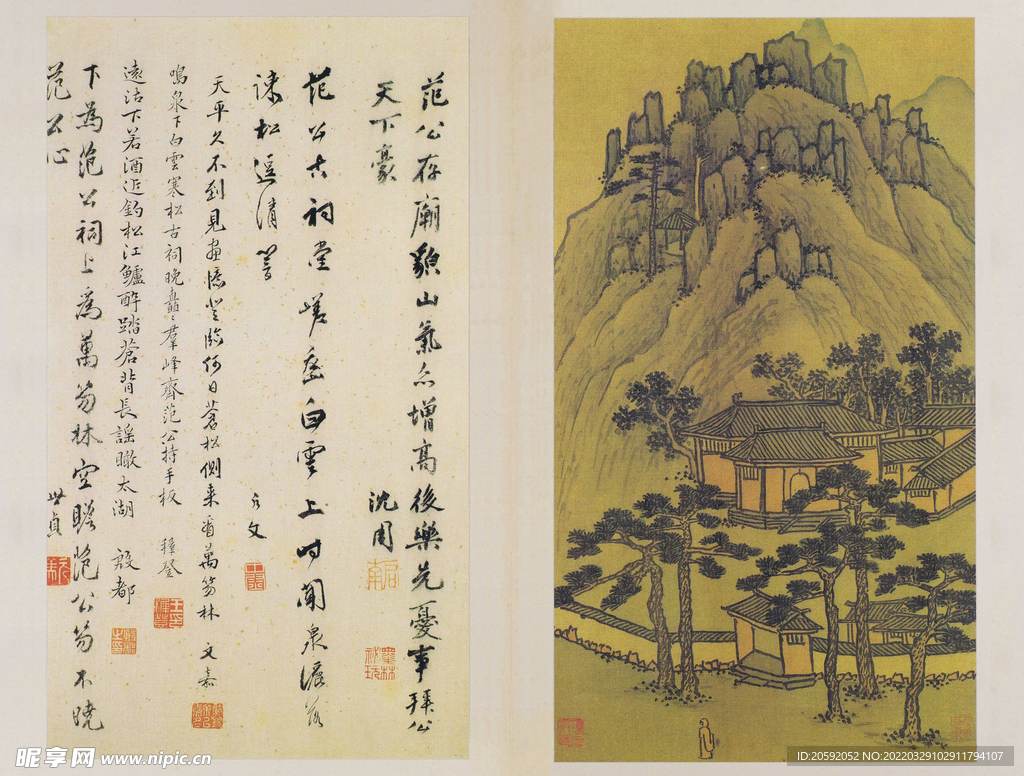 范公存廟貌山氣亦增高後樂先憂事拜公
天下豪 沈周
范公古祠堂嵯峩白雲上時聞泉落
疎松逗清響
天平久不到見畫憶登臨何日蒼松側来看萬笏林 文嘉
鳴泉下白雲寒松古祠晚矗〻羣峰齊范公持手板 穉登
遠沽下若酒近釣松江鱸醉踏蒼背長謡瞰太湖 殷都
下為范公祠上為萬笏林空瞻范公笏不曉
范公心 世貞
昵享网 www.nipic.cn
ID:20592052 NO:20220329102911794107